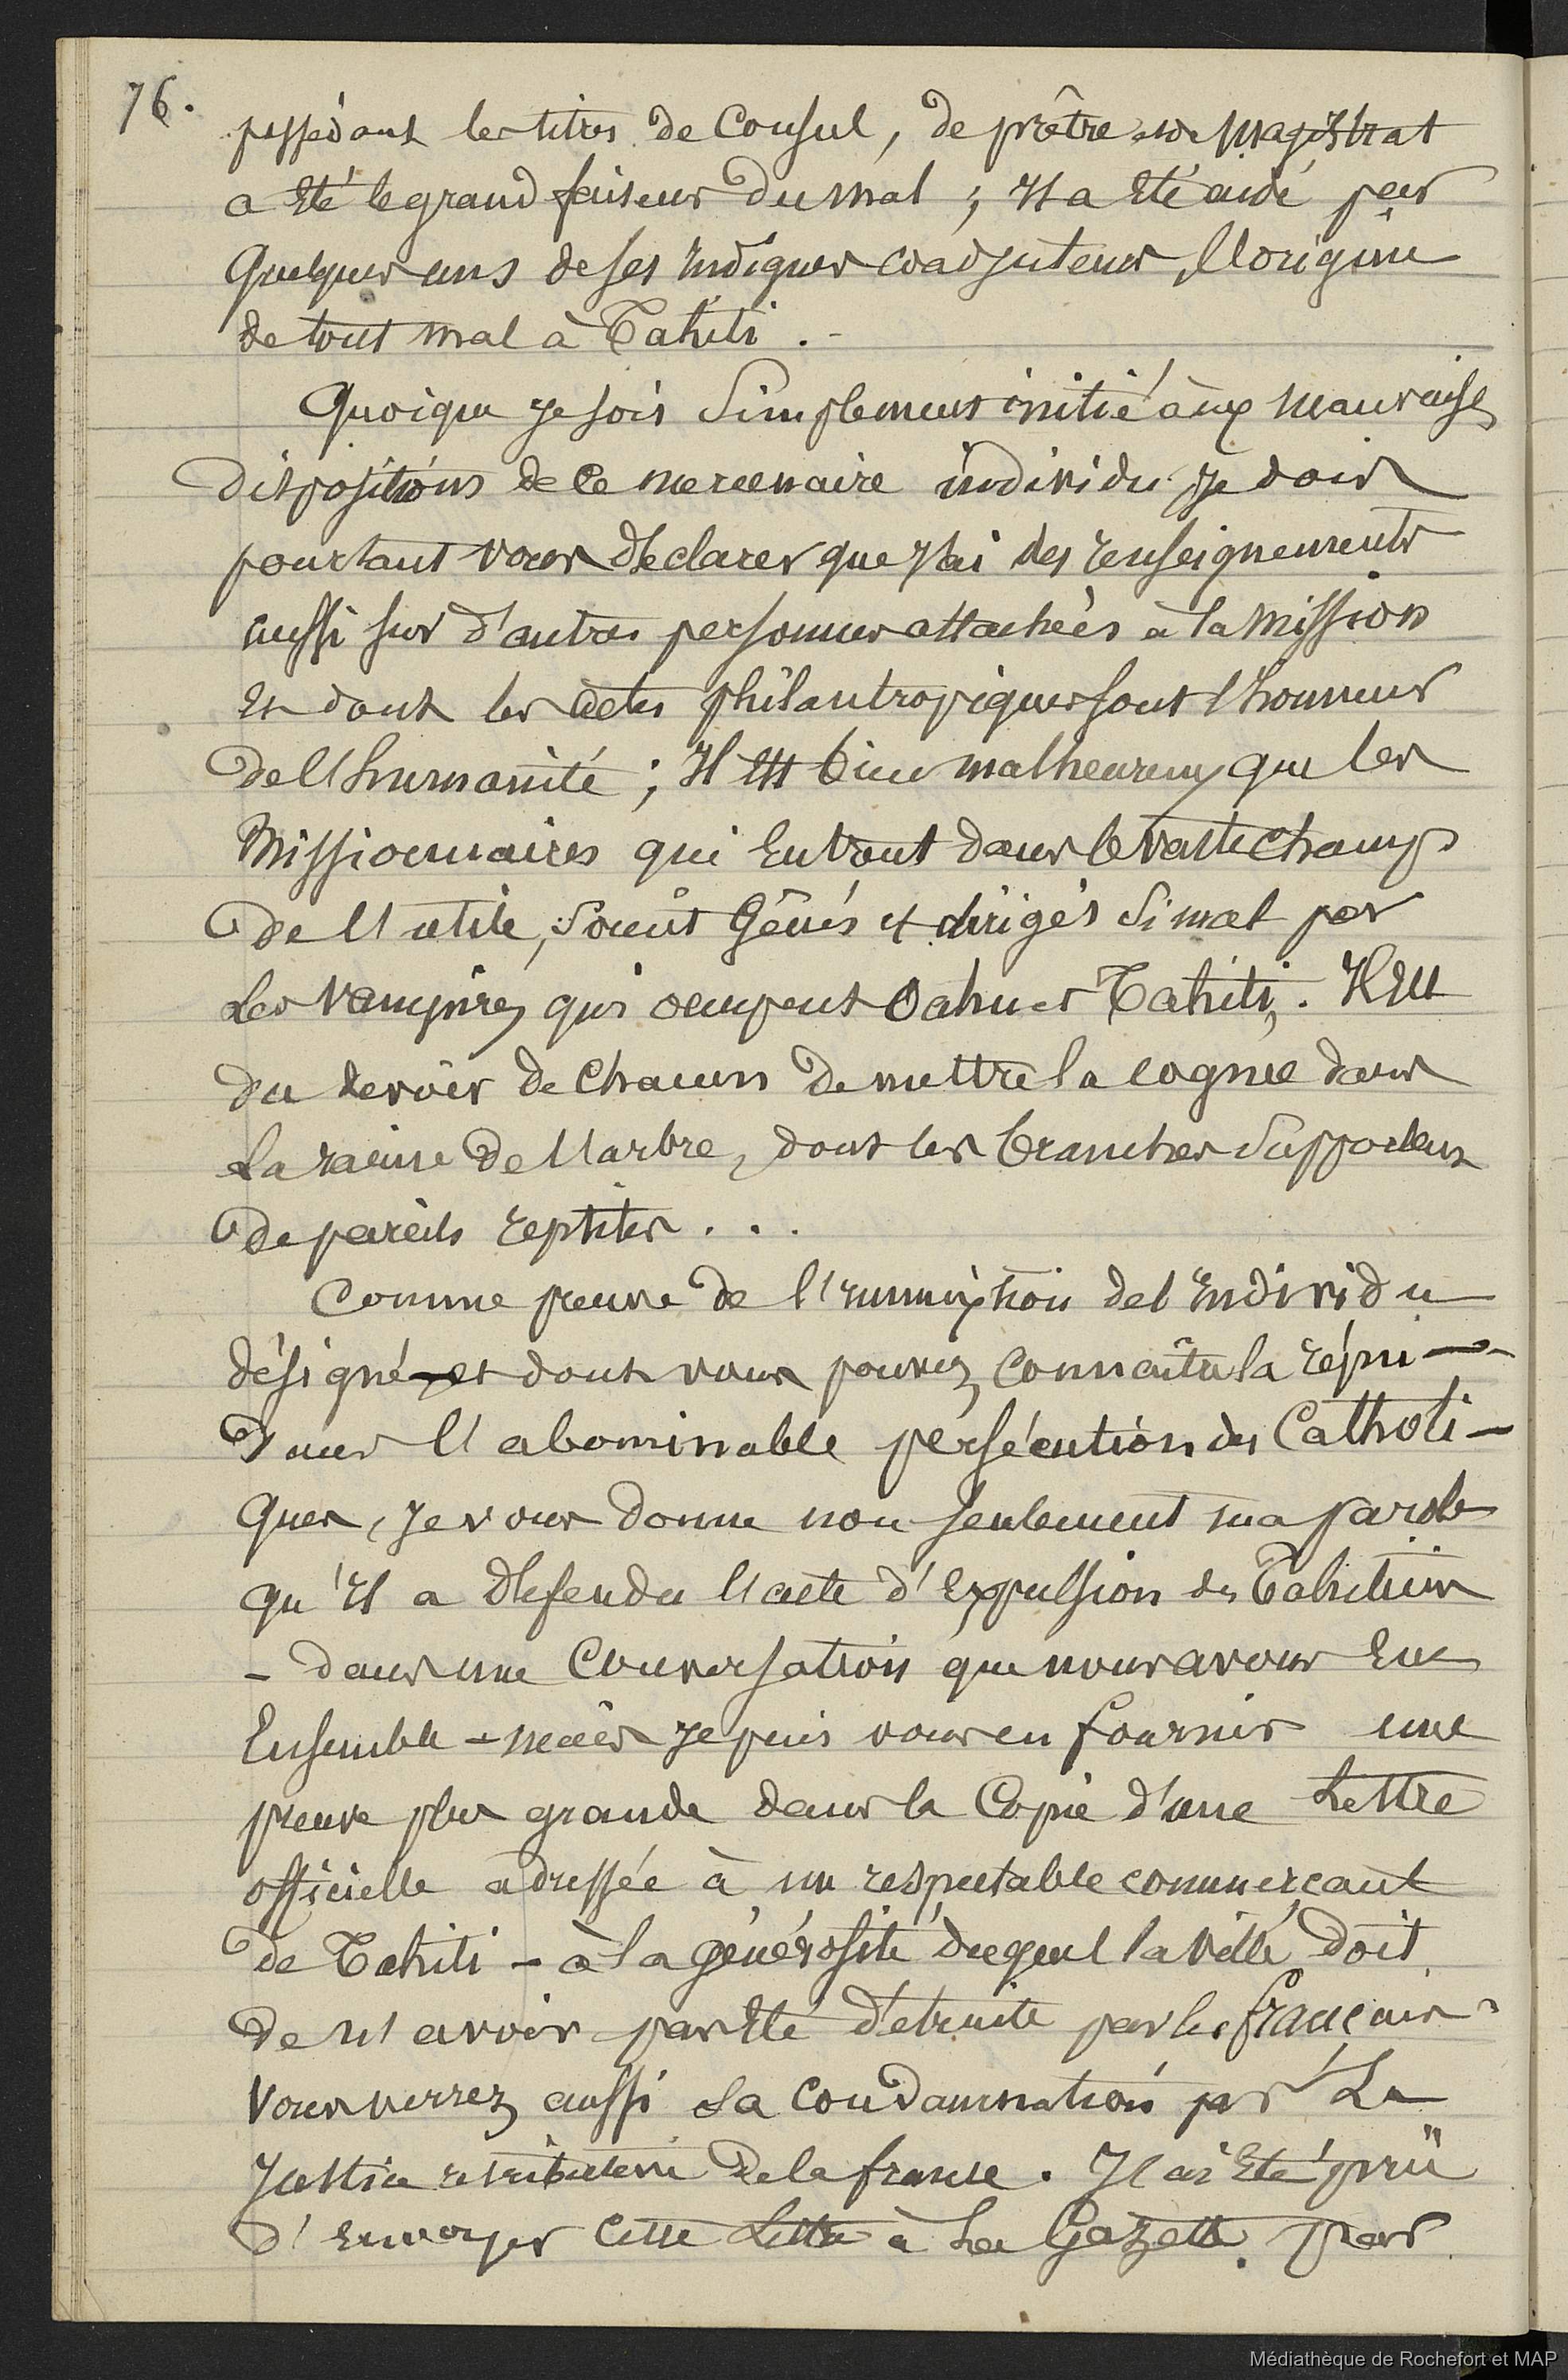 76.
possédant les titres de Consul, de prêtre et de Magistrat
a Eté le grand faiseur du mal ; Il a Eté aidé par
Quelques uns de ses Indignes coadjuteurs, l'origine
de tout mal à Tahiti . -
Quoique Je sois Simplement initié àux Mauvaises
Dispositions de Ce mercenaire individu Je dois
pourtant vous déclarer que J'ai des renseignements
aussi sur d'autres personnes attachées à la Mission
Et dont les actes philantropiques font l'honneur
de l'humanité ; Il Est bien malheureux que les
Missionnaires qui Entrent dans le vaste Champ
de l'utile, soient Gênés & dirigés si mal par
Les Vampires qui occupent Oahu et Tahiti, . Il Est
du devoir de Chacun De mettre la cognée dans
La racine de l'arbre, dont les branches supportent
de pareils reptiles . . .
Comme preuve de l'immixtion de l'Individu
désigné et dont vous pouvez Connaître la répu-
Dans l'abominable persécution des Catholi-
ques, Je vous donne non seulement ma parole
qu'Il a défendu l'acte d'Expulsion des Tahitiens
- dans une Conversation que nous avons Eue
Ensemble - mais Je puis vous en fournir une
preuve plus grande dans la Copie d'une Lettre
officielle adressée à un respectable commerçant
de Tahiti - à la générosité duquel la Ville doit
de n'avoir pas Eté détruite par les français
Vous verrez aussi Sa Condamnation par La
Justice retributive De la france . J'ai Eté prié
d'Envoyer Cette Lettre à La Gazette. par
Médiathèque de Rochefort et MAP